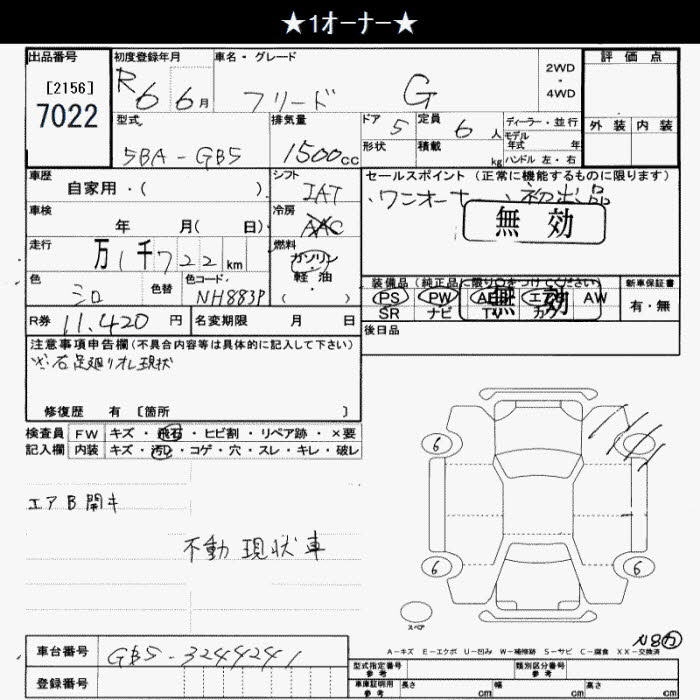 ★1オーナー★
出品番号 初度登録年月 車名・グレード 2WD ・ 4WD 評価点
[2156]
7022
R6 6月 フリード G
型式 排気量 ドア 定員 ディーラー・並行
5BA-GB5 1500cc 5 6人 モデル年式 年
形状 積載 kg ハンドル 左・右 外装 内装
車歴 シフト セールスポイント(正常に機能するものに限ります)
自家用・( ) IAT ・ワンオーナー、初出品
車検 冷房 無効
年 月( 日) AAC
走行 燃料
万1千722km ガソリン・軽・油
色 色替 色コード 装備品(純正品に限り○をつけてください) 新車保証書
シロ NH883P PS PW エアB AW 有・無
SR ナビ TV カワ 無効
R券 11,420円 名変期限 月 日 後日品
注意事項申告欄(不具合内容等は具体的に記入して下さい)
※右足廻りオレ現状
修復歴 有 [箇所 ]
検査員 FW キズ・飛石・ヒビ割・リペア跡・×要
記入欄 内装 キズ・汚レ・コゲ・穴・スレ・キレ・破レ
6
エアB開キ
不動現状車
6 6
スペア
N8方
A-キズ E-エクボ U-凹み W-補修跡 S-サビ C-腐食 XX-交換済
車台番号 GB5-3244241
登録番号
型式指定番号 参考 類別区分番号 参考
車庫証明用 参考 長さ cm 幅 cm 高さ cm